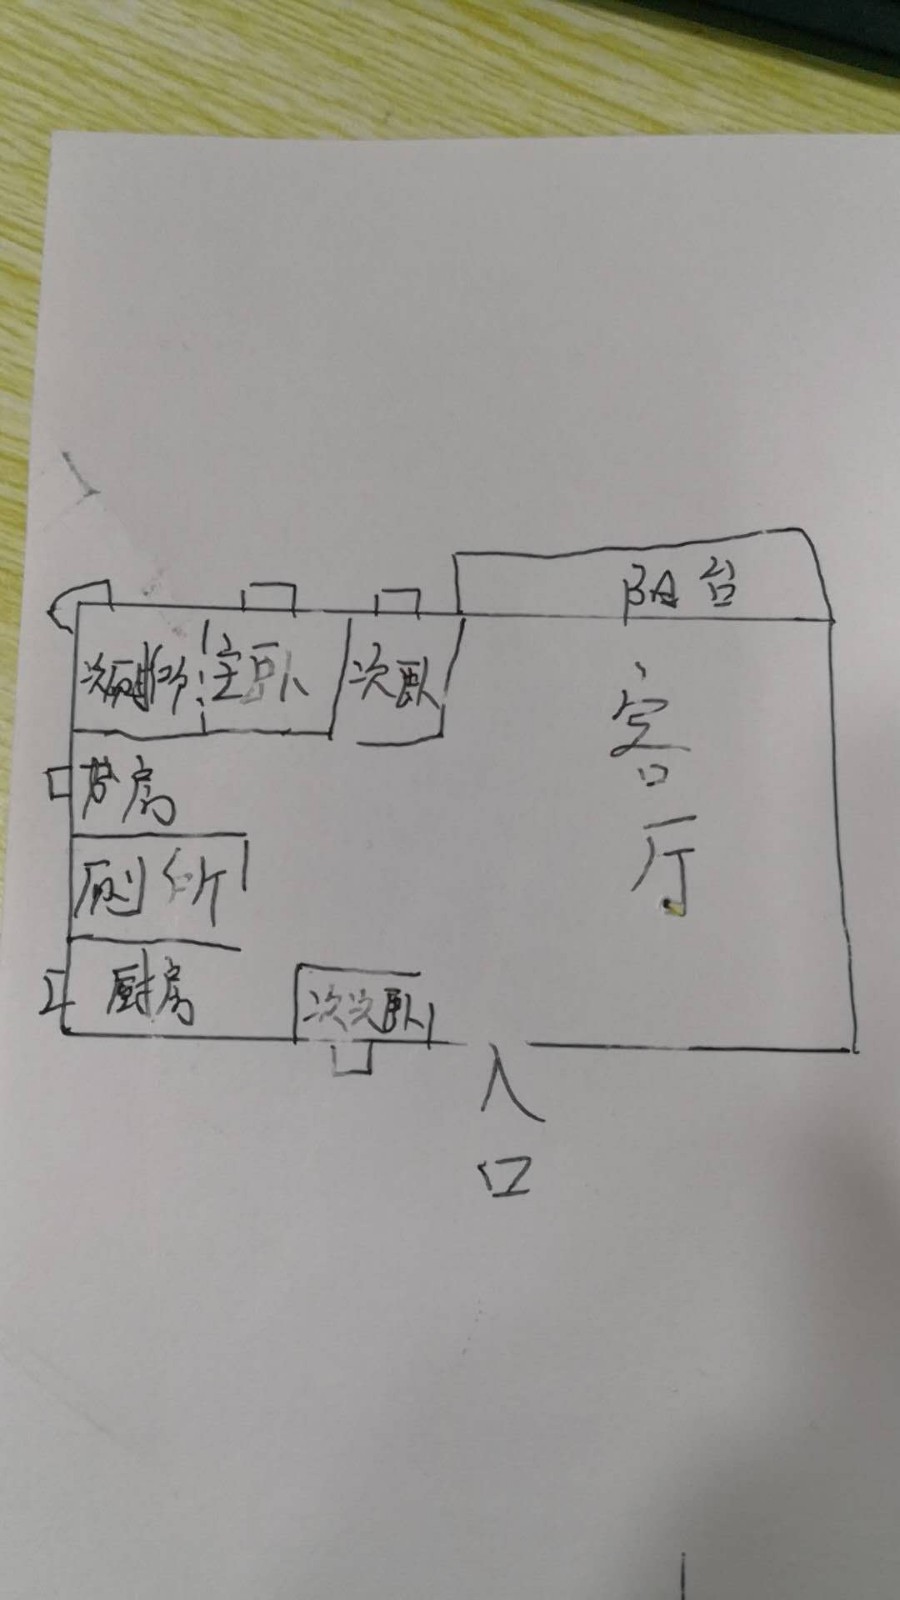 阳台
次厕所 主卧 次卧
客厅
书房
厕所
厨房
次次卧
入口